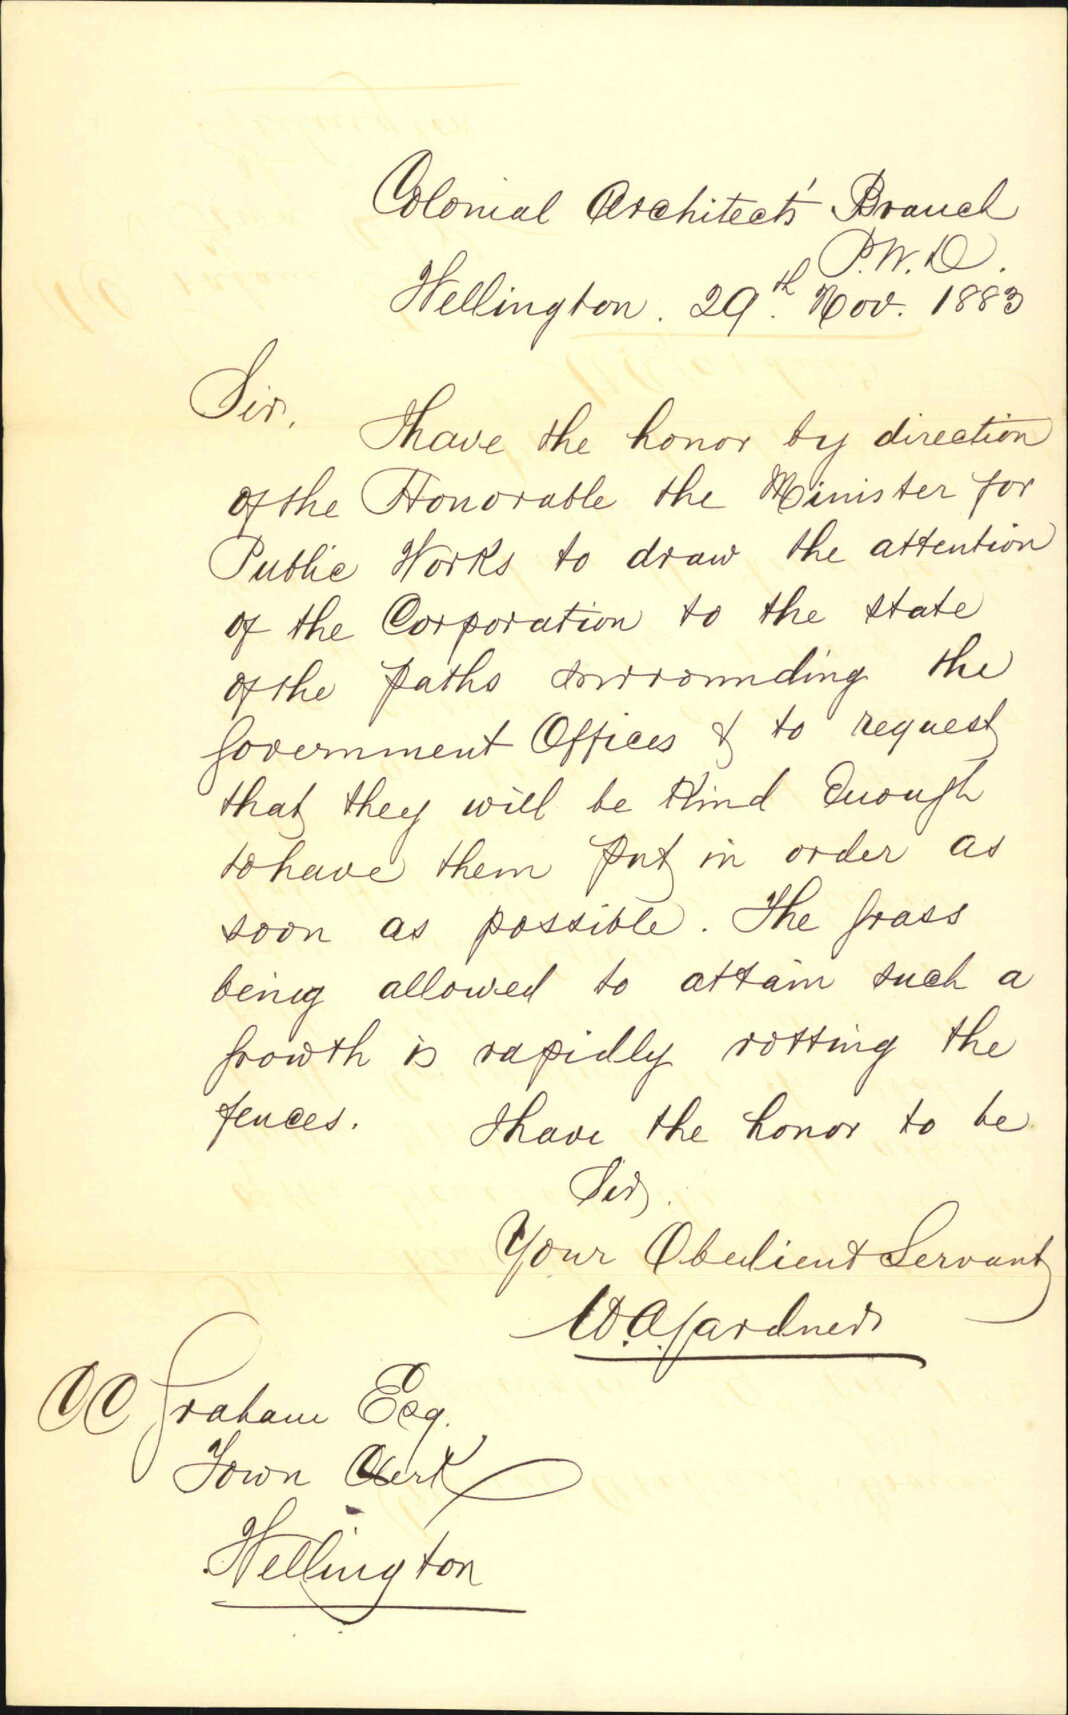 Colonial Architects' Branch
P.W.D.
Wellington. 29th. Nov. 1883
Sir,
I have the honor by direction
of the Honorable the Minister for
Public Works to draw the attention
of the Corporation to the state
of the paths surrounding the
Government Offices & to request
that they will be kind enough
to have them put in order as
soon as possible. The grass
being allowed to attain such a
growth is rapidly rotting the
fences.
I have the honor to be
Sir,
Your Obedient Servant
W.A. Gardner
CC Graham Esq.
Town Clerk
Wellington